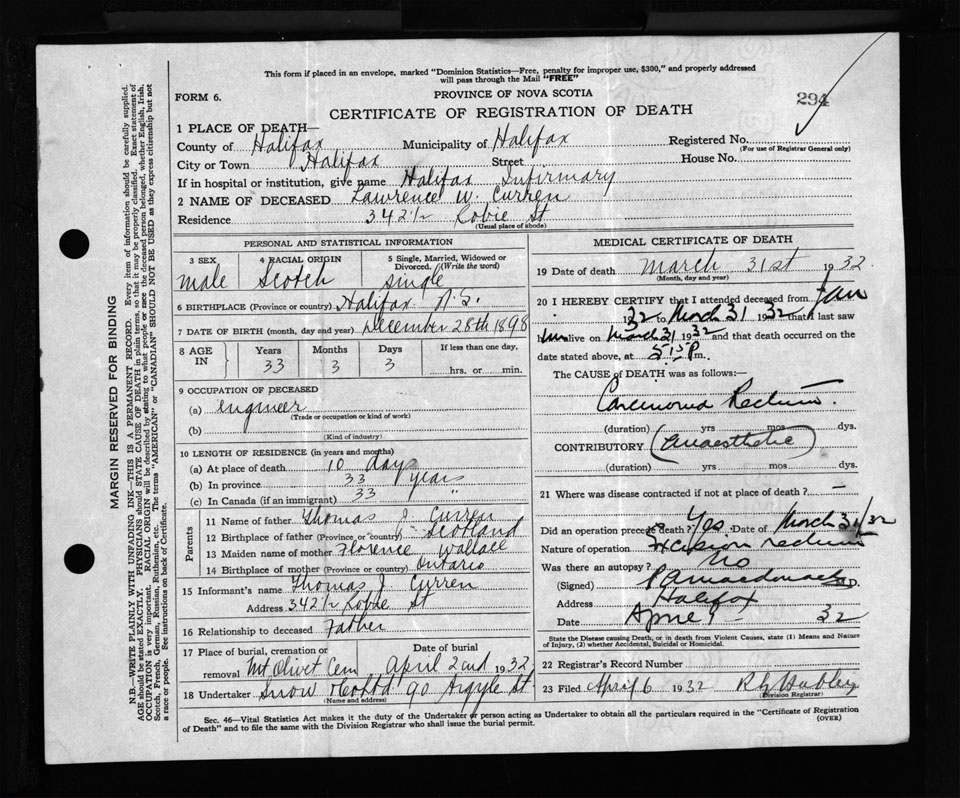 This form if placed in an envelope, marked "Dominion Statistics—Free, penalty for improper use, $300," and properly addressed
will pass through the Mail "FREE"
FORM 6.
PROVINCE OF NOVA SCOTIA
294
CERTIFICATE OF REGISTRATION OF DEATH
1 PLACE OF DEATH—
County of Halifax Municipality of Halifax Registered No.
(For use of Registrar General only)
City or Town Halifax Street House No.
If in hospital or institution, give name Halifax Infirmary
2 NAME OF DECEASED Lawrence W. Curren
Residence 342 1/2 Robie St
(Usual place of abode)
MARGIN RESERVED FOR BINDING
N.B.—WRITE PLAINLY WITH UNFADING INK—THIS IS A PERMANENT RECORD. Every item of information should be carefully supplied.
AGE should be stated EXACTLY. PHYSICIANS should STATE CAUSE OF DEATH in plain terms, so that it may be properly classified. Exact statement of
OCCUPATION is very important. RACIAL ORIGIN will be described by stating to what people or race the deceased person belonged, whether English, Irish,
Scotch, French, German, Russian, Ruthenian, etc. The terms "AMERICAN" or "CANADIAN" SHOULD NOT BE USED as they express citizenship but not
a race or people. See instructions on back of Certificate.
PERSONAL AND STATISTICAL INFORMATION
3 SEX
4 RACIAL ORIGIN
5 Single, Married, Widowed or
Divorced. (Write the word)
male Scotch single
6 BIRTHPLACE (Province or country) Halifax N.S.
7 DATE OF BIRTH (month, day and year) December 28th 1898
8 AGE IN
Years Months Days If less than one day.
33 3 3 hrs. or min.
9 OCCUPATION OF DECEASED
(a) Engineer
(Trade or occupation or kind of work)
(b)
(Kind of industry)
10 LENGTH OF RESIDENCE (in years and months)
(a) At place of death 10 days
(b) In province 33 years
(c) In Canada (if an immigrant) 33 "
Parents
11 Name of father Thomas J. Curren
12 Birthplace of father (Province or country) Scotland
13 Maiden name of mother Florence Wallace
14 Birthplace of mother (Province or country) Ontario
15 Informant's name Thomas J. Curren
Address 342 1/2 Robie St
16 Relationship to deceased Father
17 Place of burial, cremation or Date of burial
removal Mt Olivet Cem April 2nd 1932
18 Undertaker Snow & Co Ltd 90 Argyle St
(Name and address)
MEDICAL CERTIFICATE OF DEATH
19 Date of death March 31st 1932
(Month, day and year)
20 I HEREBY CERTIFY that I attended deceased from Jan
1932 to March 31 1932 that I last saw
him alive on March 31 1932 and that death occurred on the
date stated above, at P m.
The CAUSE of DEATH was as follows:—
Carcinoma Rectum.
(duration) yrs mos dys.
CONTRIBUTORY (Anaesthetic)
(duration) yrs mos dys.
21 Where was disease contracted if not at place of death? —
Did an operation precede death? Yes Date of March 31/32
Nature of operation Excision rectum
Was there an autopsy? No
(Signed) M.D.
Address Halifax
Date April 1 — 32
State the Disease causing Death, or in death from Violent Causes, state (1) Means and Nature
of Injury, (2) whether Accidental, Suicidal or Homicidal.
22 Registrar's Record Number
23 Filed April 6 1932
Division Registrar
Sec. 46—Vital Statistics Act makes it the duty of the Undertaker or person acting as Undertaker to obtain all the particulars required in the "Certificate of Registration
of Death" and to file the same with the Division Registrar who shall issue the burial permit.
(OVER)